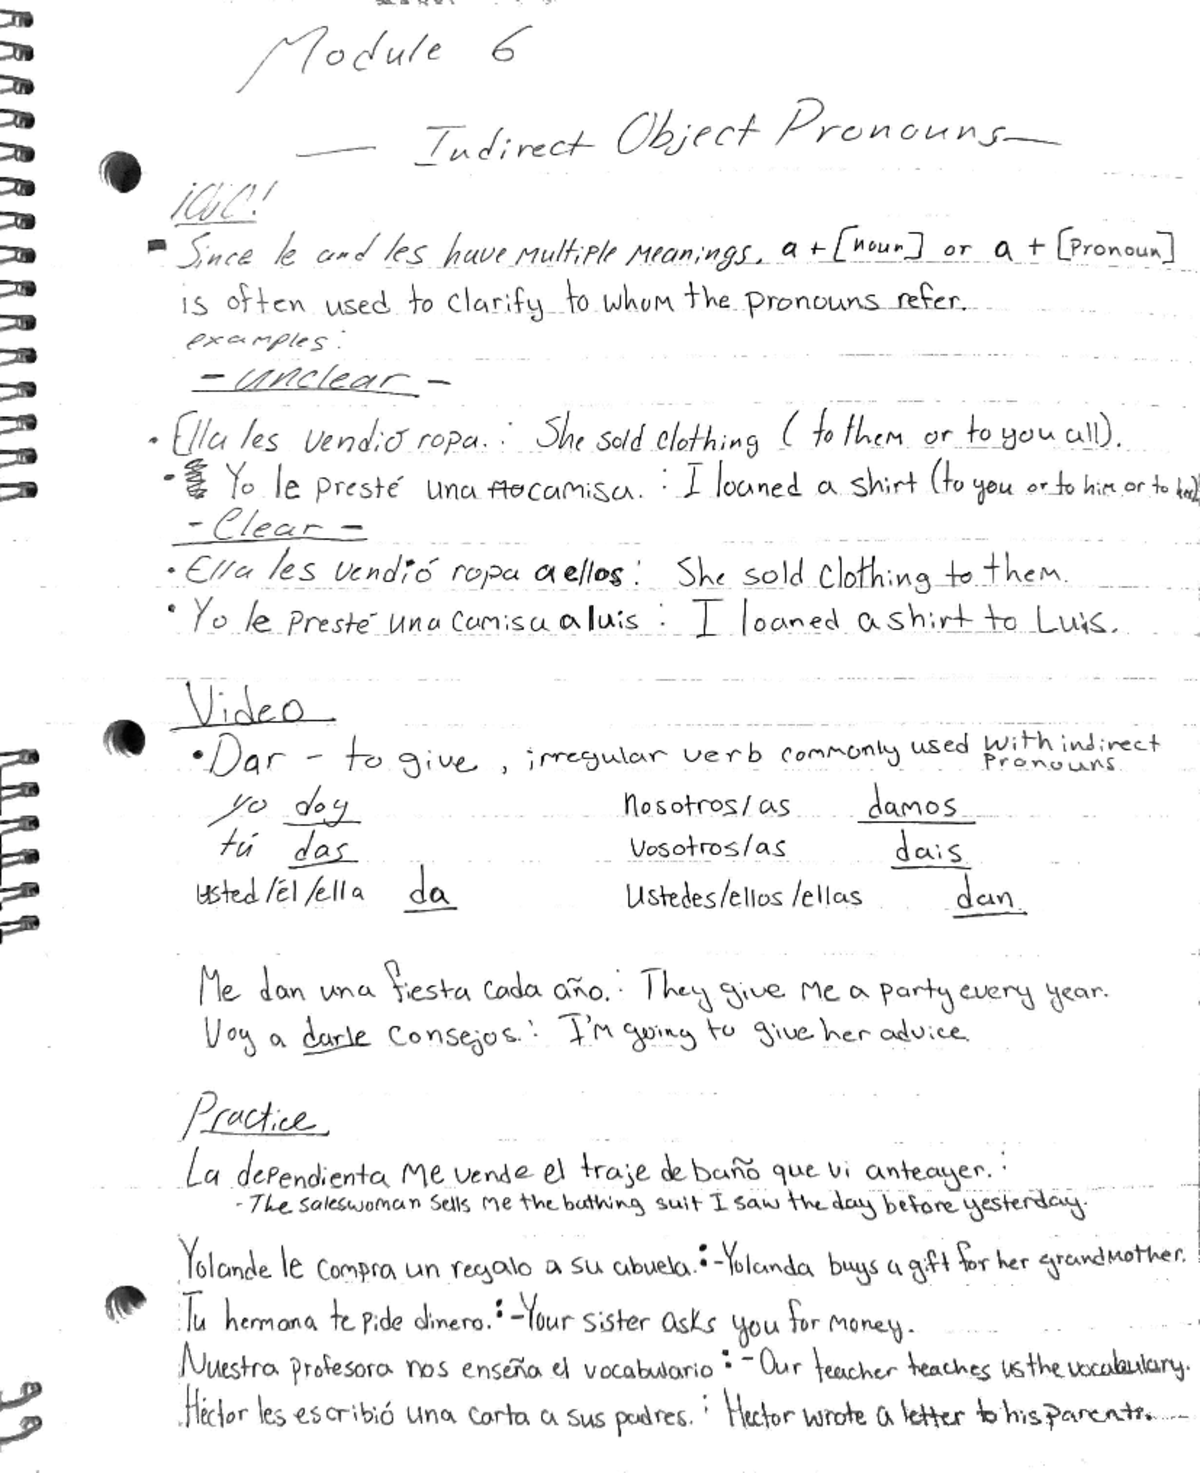 Module 6
— Indirect Object Pronouns —
- Since le and les have multiple meanings, a + [noun] or a + [pronoun]
is often used to clarify to whom the pronouns refer.
examples:
- unclear -
• Ella les vendió ropa. : She sold clothing (to them or to you all).
• Yo le presté una camisa. : I loaned a shirt (to you or to him or to her)
- Clear -
• Ella les vendió ropa a ellos : She sold clothing to them.
• Yo le presté una camisa a luis : I loaned a shirt to Luis.
Video
• Dar - to give, irregular verb commonly used with indirect
pronouns
yo doy nosotros/as damos
tú das vosotros/as dais
usted/él/ella da ustedes/ellos/ellas dan
Me dan una fiesta cada año. : They give me a party every year.
Voy a darle consejos. : I'm going to give her advice.
Practice
La dependienta me vende el traje de baño que vi anteayer. :
- The saleswoman sells me the bathing suit I saw the day before yesterday.
Yolande le compra un regalo a su abuela. : - Yolanda buys a gift for her grandmother.
Tu hermana te pide dinero. : - Your sister asks you for money.
Nuestra profesora nos enseña el vocabulario : - Our teacher teaches us the vocabulary.
Héctor les escribió una carta a sus padres. : Hector wrote a letter to his parents.